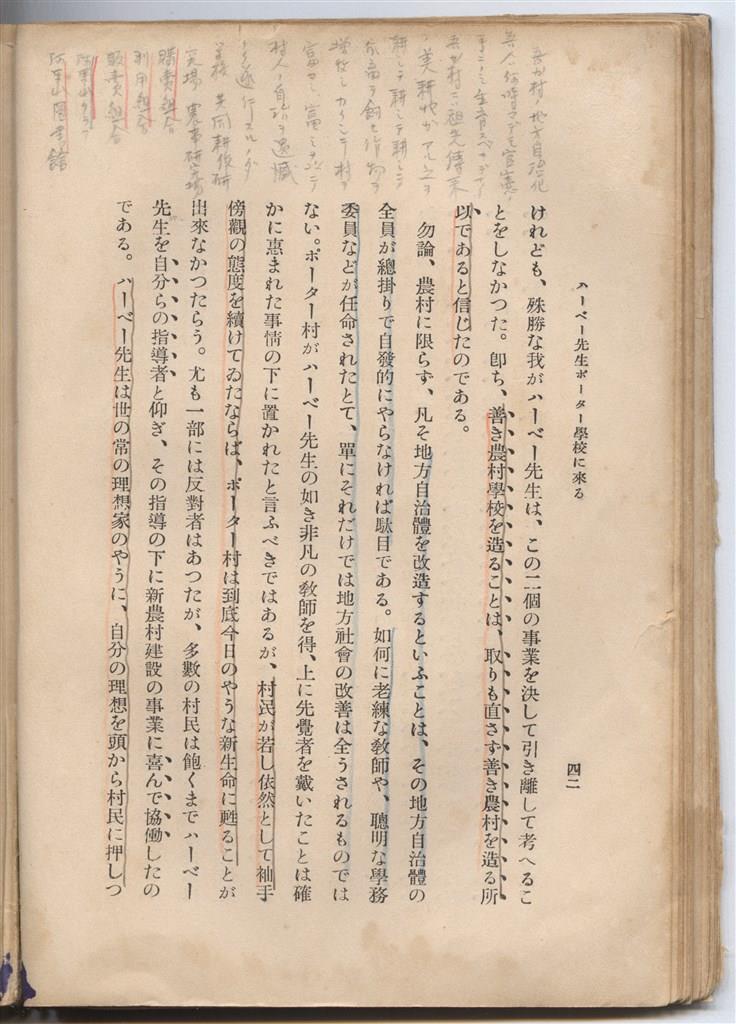 ハーベー先生ポーター學校に來る
四二
けれども、殊勝な我がハーベー先生は、この二個の事業を決して引き離して考へるこ
とをしなかつた。卽ち、善き農村學校を造ることは、取りも直さず善き農村を造る所
以であると信じたのである。
勿論、農村に限らず、凡そ地方自治體を改造するといふことは、その地方自治體の
全員が總掛りで自發的にやらなければ駄目である。如何に老練な敎師や、聰明な學務
委員などが任命されたとて、單にそれだけでは地方社會の改善は全うされるものでは
ない。ポーター村がハーベー先生の如き非凡の敎師を得、上に先覺者を戴いたことは確
かに惠まれた事情の下に置かれたと言ふべきではあるが、村民が若し依然として袖手
傍觀の態度を續けてゐたならば、ポーター村は到底今日のやうな新生命に甦ることが
出來なかつたらう。尤も一部には反對者はあつたが、多數の村民は飽くまでハーベー
先生を自分らの指導者と仰ぎ、その指導の下に新農村建設の事業に喜んで協働したの
である。ハーベー先生は世の常の理想家のやうに、自分の理想を頭から村民に押しつ
吾が村ノ地方自治化
吾人ハ何時マデモ官憲ノ
吾が村ニハ祖先傳來
ノ美耕地がアル之ヲ
耕シテ耕シテ耕シテ
村人ノ自治
共同耕作
農事研究
購買組合
利用組合
販賣組合
圖書館